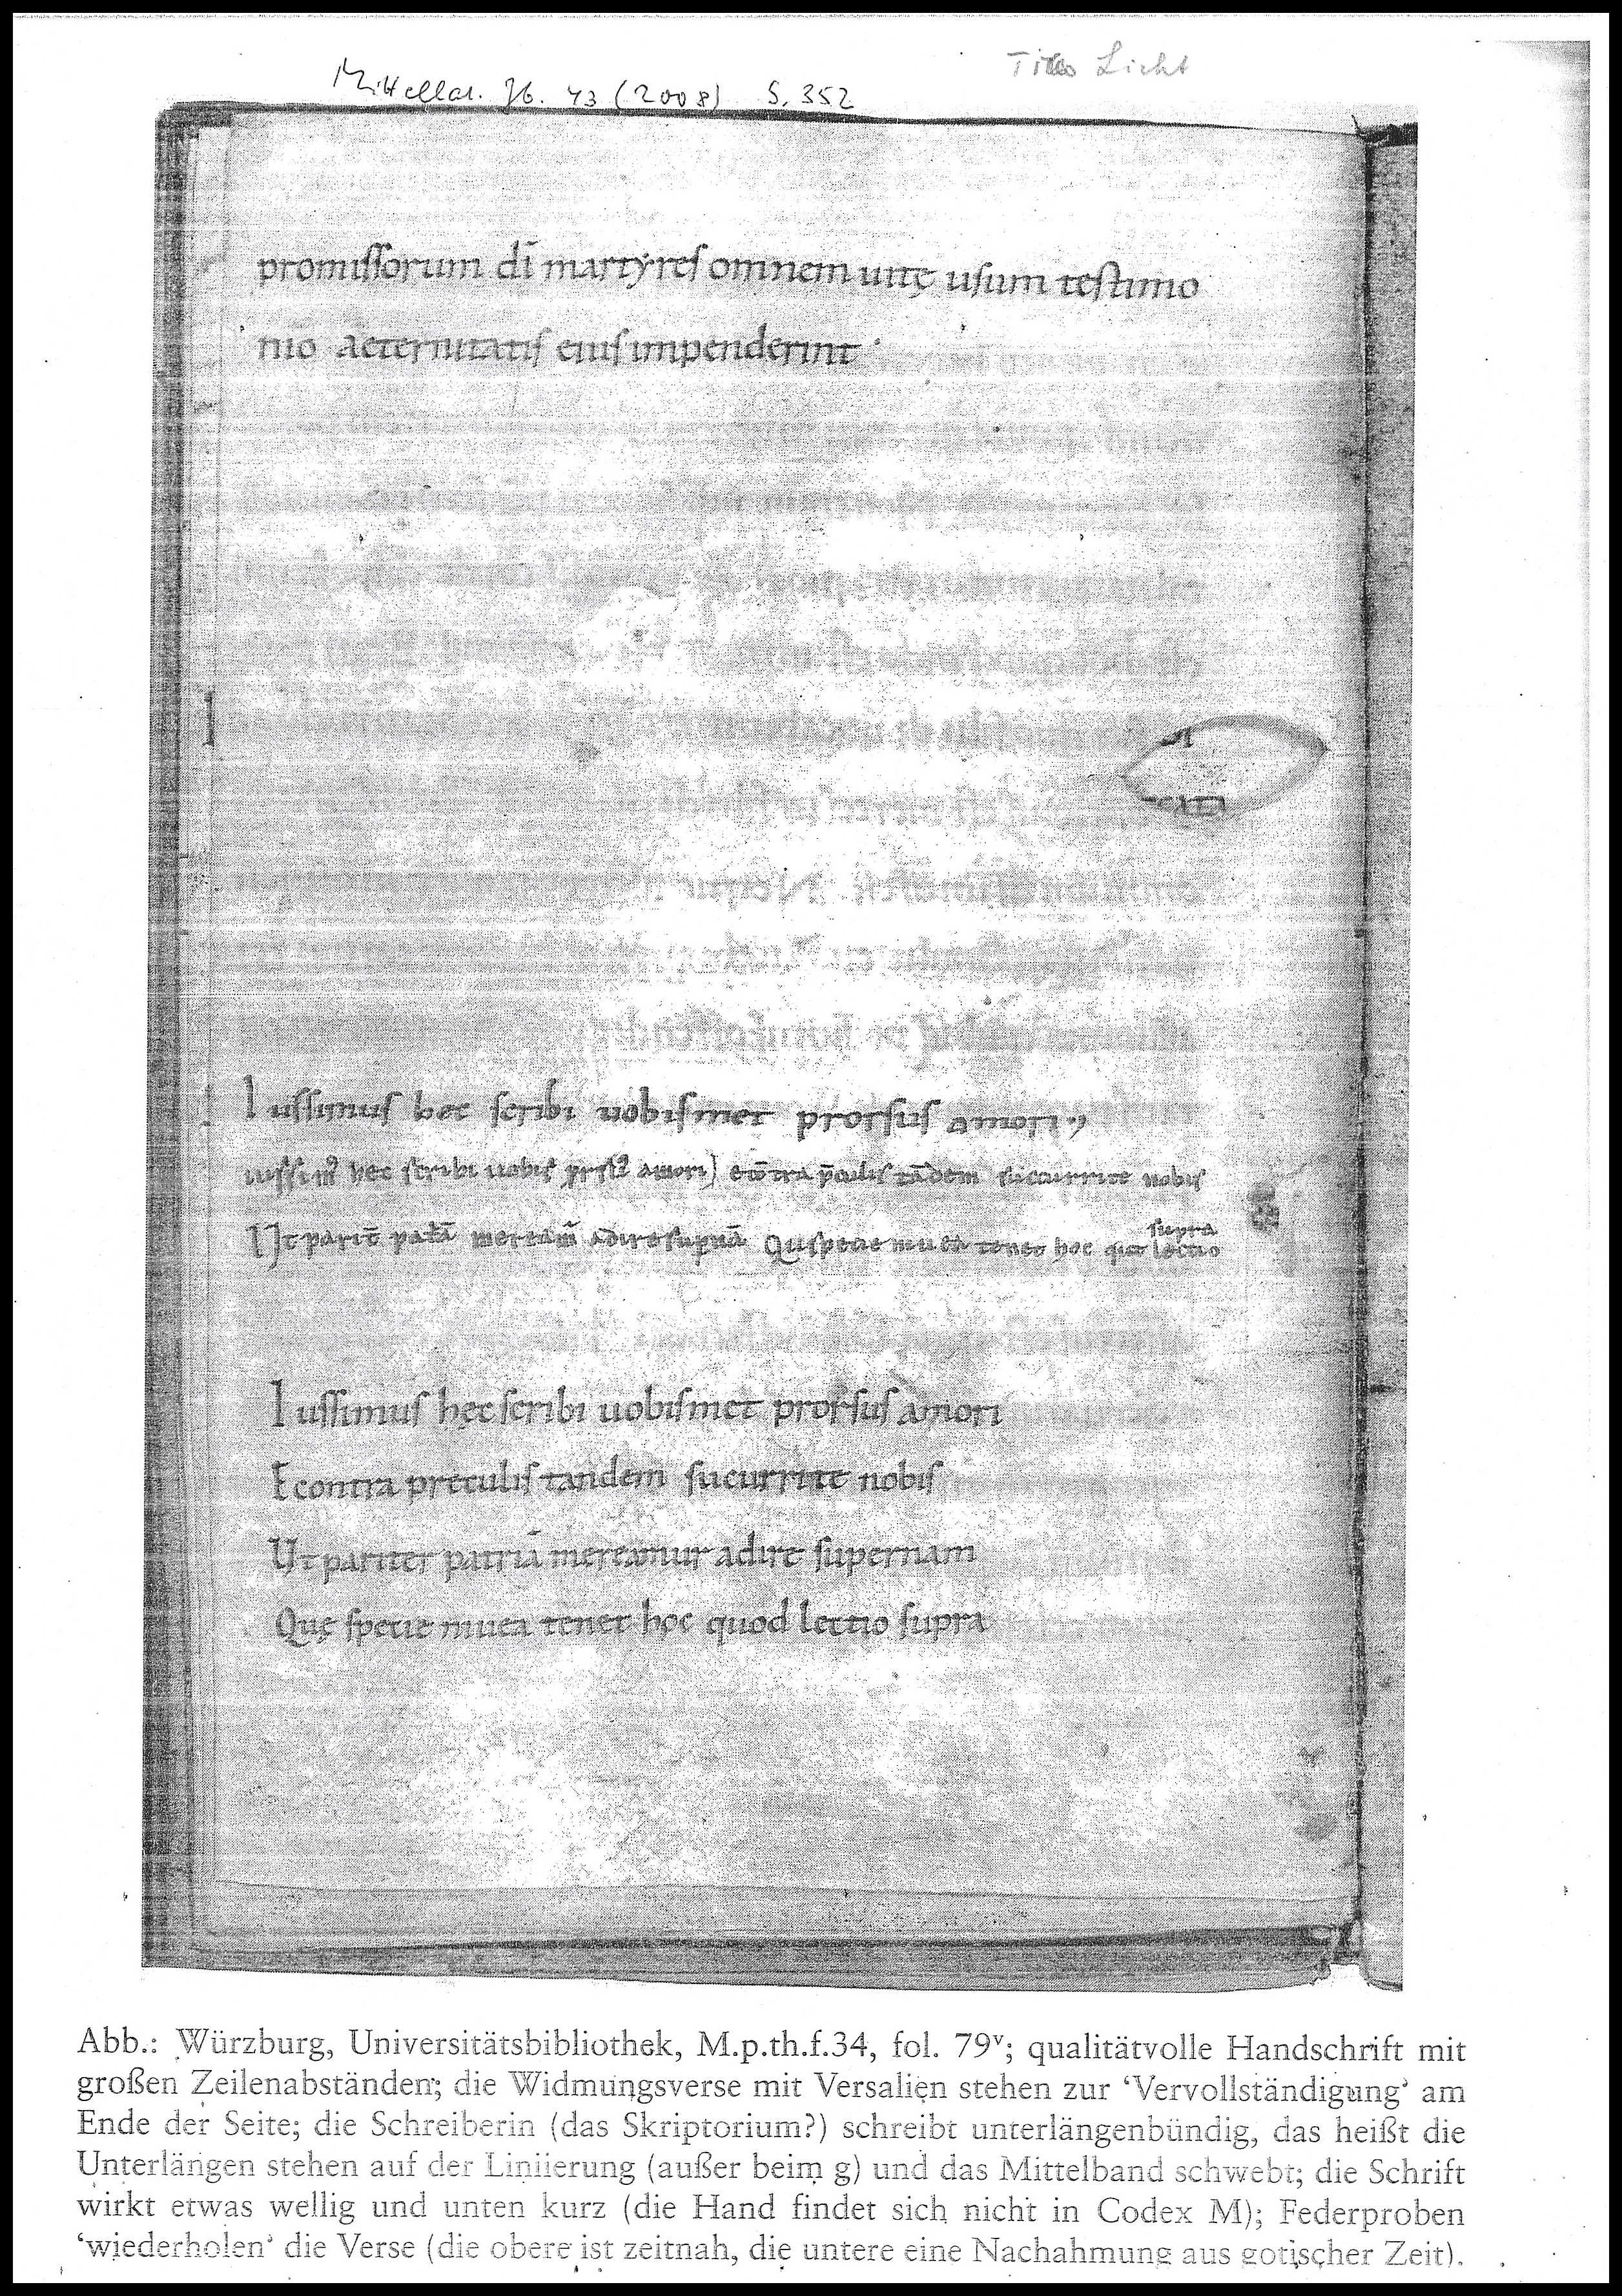 Tino Licht
Mittellat. Jb. 43 (2008) S. 352
promiſſorum dī martyreſ omnem uitę uſum teſtimo
nio aeternitatiſ eiuſ impenderint ·
Iuſſimuſ hec ſcribi uobiſmet prorſuſ amori
iuſſimꝰ hec ſcribi uobiſ prſꝰ amori ecōtra p̄culiſ tādem succurrite nobiſ
supra
Ut parit̄ meream̄ adire supnā Qu ſpecie niuea tenet hoc lectio
Iuſſimuſ hęc ſcribi uobiſmet prorſuſ amori
E contra preculiſ tandem ſucurrite nobiſ
Ut pariter patriā mereamur adire ſupernam
Quę ſpecie niuea tenet hoc quod lectio ſupra
Abb.: Würzburg, Universitätsbibliothek, M.p.th.f.34, fol. 79ᵛ; qualitätvolle Handschrift mit
großen Zeilenabständen; die Widmungsverse mit Versalien stehen zur ‘Vervollständigung’ am
Ende der Seite; die Schreiberin (das Skriptorium?) schreibt unterlängenbündig, das heißt die
Unterlängen stehen auf der Liniierung (außer beim g) und das Mittelband schwebt; die Schrift
wirkt etwas wellig und unten kurz (die Hand findet sich nicht in Codex M); Federproben
‘wiederholen’ die Verse (die obere ist zeitnah, die untere eine Nachahmung aus gotischer Zeit).